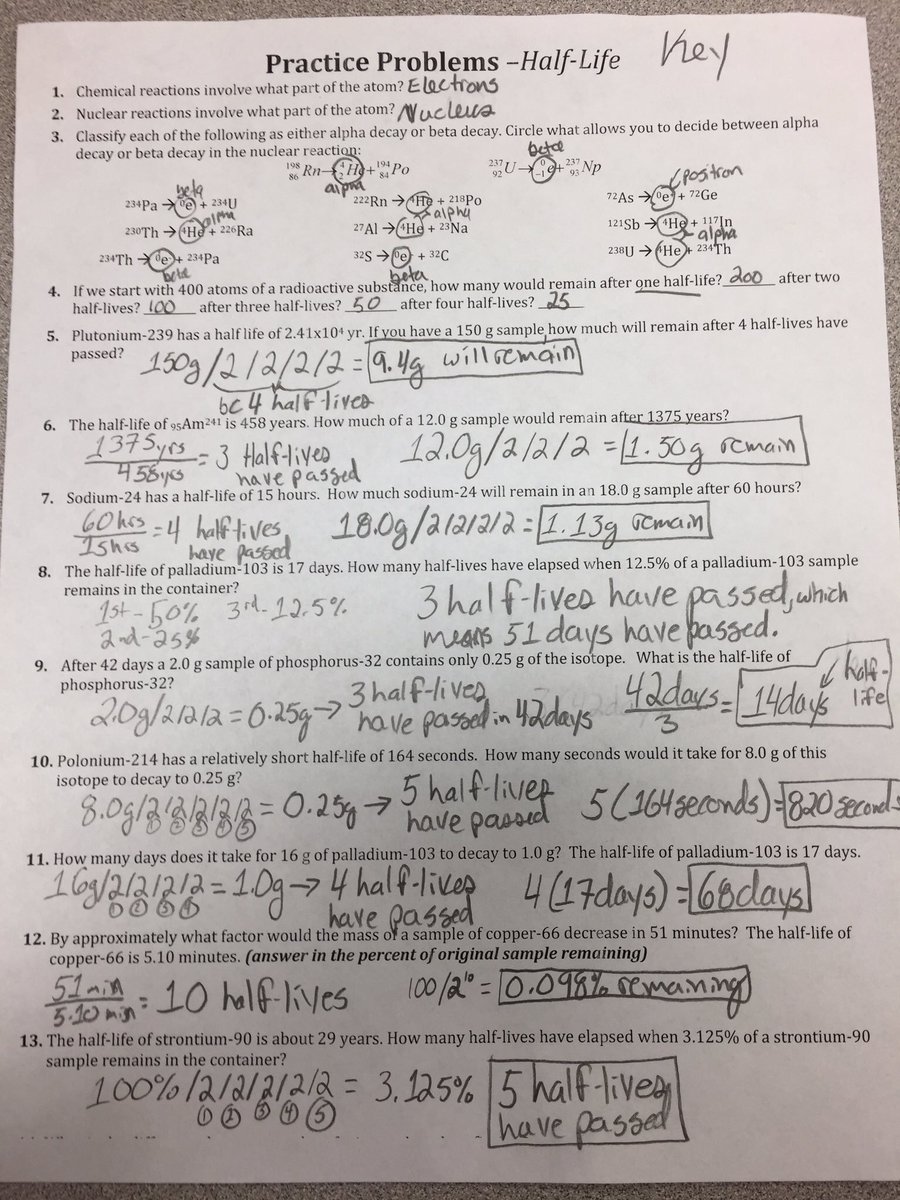 Practice Problems –Half-Life Key
1. Chemical reactions involve what part of the atom? Electrons
2. Nuclear reactions involve what part of the atom? Nucleus
3. Classify each of the following as either alpha decay or beta decay. Circle what allows you to decide between alpha
decay or beta decay in the nuclear reaction:
beta
¹⁹⁸₈₆Rn → ⁴₂He + ¹⁹⁴₈₄Po ²³⁷₉₂U → ⁰₋₁e + ²³⁷₉₃Np
beta alpha positron
²³⁴Pa → ⁰e + ²³⁴U ²²²Rn → ⁴He + ²¹⁸Po ⁷²As → ⁰e + ⁷²Ge
alpha alpha
²³⁰Th → ⁴He + ²²⁶Ra ²⁷Al → ⁴He + ²³Na ¹²¹Sb → ⁴He + ¹¹⁷In
alpha
²³⁴Th → ⁰e + ²³⁴Pa ³²S → ⁰e + ³²C ²³⁸U → ⁴He + ²³⁴Th
beta beta
4. If we start with 400 atoms of a radioactive substance, how many would remain after one half-life? 200 after two
half-lives? 100 after three half-lives? 50 after four half-lives? 25
5. Plutonium-239 has a half life of 2.41x10⁴ yr. If you have a 150 g sample how much will remain after 4 half-lives have
passed?
150g/2/2/2/2 = 9.4g will remain
bc 4 half-lives
6. The half-life of ₉₅Am²⁴¹ is 458 years. How much of a 12.0 g sample would remain after 1375 years?
1375yrs/458yrs = 3 Half-lives have passed 12.0g/2/2/2 = 1.50g remain
7. Sodium-24 has a half-life of 15 hours. How much sodium-24 will remain in an 18.0 g sample after 60 hours?
60hrs/15hrs = 4 half-lives have passed 18.0g/2/2/2/2 = 1.13g remain
8. The half-life of palladium-103 is 17 days. How many half-lives have elapsed when 12.5% of a palladium-103 sample
remains in the container?
1st - 50% 3rd - 12.5% 3 half-lives have passed, which
2nd - 25% means 51 days have passed.
9. After 42 days a 2.0 g sample of phosphorus-32 contains only 0.25 g of the isotope. What is the half-life of
phosphorus-32?
2.0g/2/2/2 = 0.25g → 3 half-lives have passed in 42days 42days/3 = 14days half-life
10. Polonium-214 has a relatively short half-life of 164 seconds. How many seconds would it take for 8.0 g of this
isotope to decay to 0.25 g?
8.0g/2/2/2/2/2 = 0.25g → 5 half-lives have passed 5(164seconds)=820 seconds
① ② ③ ④ ⑤
11. How many days does it take for 16 g of palladium-103 to decay to 1.0 g? The half-life of palladium-103 is 17 days.
16g/2/2/2/2 = 1.0g → 4 half-lives have passed 4(17days) = 68days
① ② ③ ④
12. By approximately what factor would the mass of a sample of copper-66 decrease in 51 minutes? The half-life of
copper-66 is 5.10 minutes. (answer in the percent of original sample remaining)
51 min/5.10 min = 10 half-lives 100/2¹⁰ = 0.098% remaining
13. The half-life of strontium-90 is about 29 years. How many half-lives have elapsed when 3.125% of a strontium-90
sample remains in the container?
100%/2/2/2/2/2 = 3.125% 5 half-lives
① ② ③ ④ ⑤ have passed